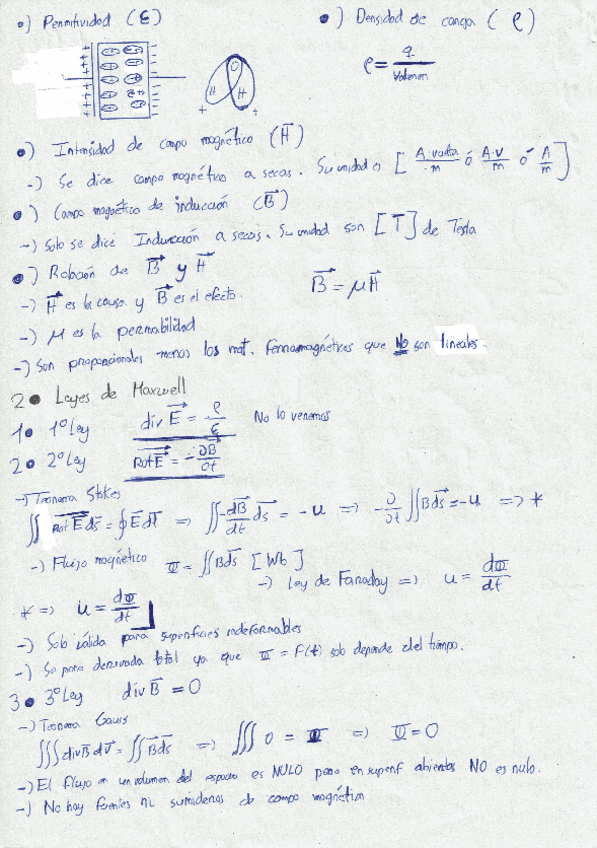 •) Permitividad (ε)
•) Densidad de carga (ρ)
ρ = q / Volumen
•) Intensidad de campo magnético (H⃗)
-) Se dice campo magnético a secas. Su unidad es [A·vuelta/m ó A·V/m ó A/m]
•) Campo magnético de inducción (B⃗)
-) Solo se dice Inducción a secas. Su unidad son [T] de Tesla
•) Relación de B⃗ y H⃗
B⃗ = μH⃗
-) H⃗ es la causa y B⃗ es el efecto.
-) μ es la permabilidad
-) Son proporcionales menos los mat. ferromagnéticos que NO son lineales.
2• Leyes de Maxwell
1• 1º Ley div E⃗ = ρ/ε No lo veremos
2• 2º Ley Rot E⃗ = -∂B⃗/∂t
-) Teorema Stokes
∬ Rot E⃗ ds⃗ = ∮ E⃗ dl⃗ ⇒ ∬ -dB⃗/dt ds⃗ = -u ⇒ -∂/∂t ∬ B ds⃗ = -u ⇒ *
-) Flujo magnético Φ = ∬ B ds⃗ [Wb]
-) Ley de Faraday ⇒ u = dΦ/dt
* ⇒ u = dΦ/dt
-) Solo válida para superficies indeformables
-) Se pone derivada total ya que Φ = F(t) solo depende del tiempo.
3• 3º Ley div B⃗ = 0
-) Teorema Gauss
∭ div B⃗ dV = ∬ B⃗ ds ⇒ ∭ 0 = Φ ⇒ Φ = 0
-) El flujo en un volumen del espacio es NULO pero en superf abiertas NO es nulo.
-) No hay fuentes ni sumideros de campo magnético